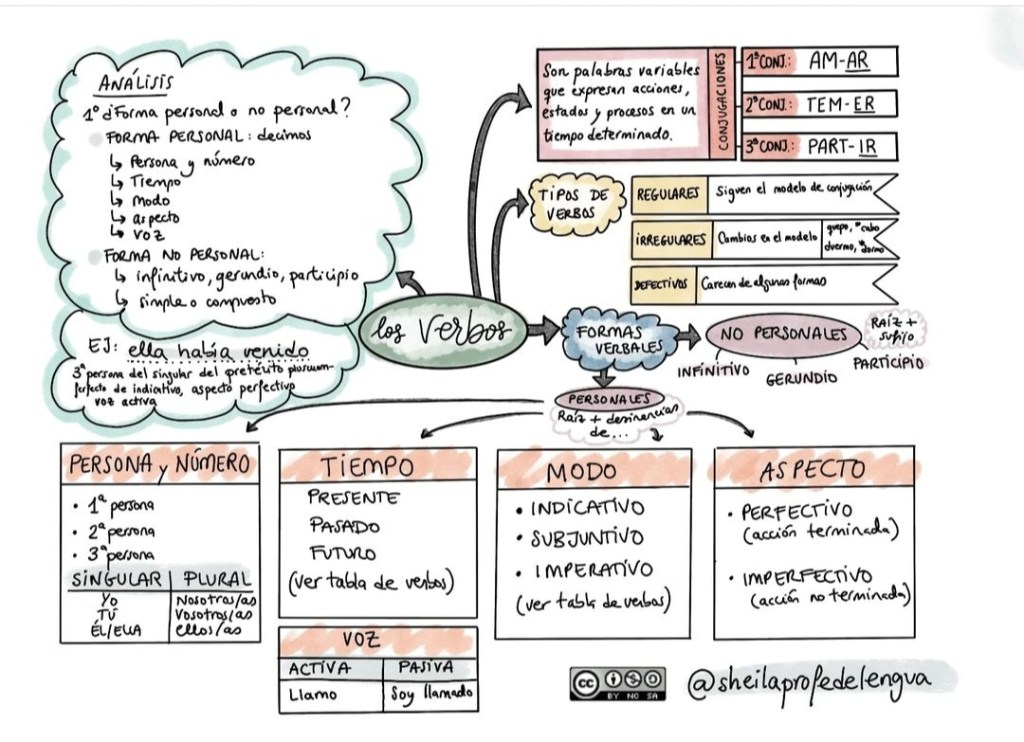 ANÁLISIS
1º ¿Forma personal o no personal?
FORMA PERSONAL: decimos
↳ Persona y número
↳ Tiempo
↳ Modo
↳ aspecto
↳ voz
FORMA NO PERSONAL:
↳ infinitivo, gerundio, participio
↳ simple o compuesto
EJ: ella había venido
3ª persona del singular del pretérito pluscuam-
perfecto de indicativo, aspecto perfectivo
voz activa
los verbos
Son palabras variables
que expresan acciones,
estados y procesos en un
tiempo determinado.
CONJUGACIONES
1ªCONJ.: AM-AR
2ªCONJ.: TEM-ER
3ªCONJ.: PART-IR
TIPOS DE
VERBOS
REGULARES Siguen el modelo de conjugación
IRREGULARES Cambios en el modelo
quepo, *cabo
duermo, *dormo
DEFECTIVOS Carecen de algunas formas
FORMAS
VERBALES
NO PERSONALES
RAÍZ +
sufijo
INFINITIVO
GERUNDIO
PARTICIPIO
PERSONALES
Raíz + desinencias
de...
PERSONA y NÚMERO
• 1ª persona
• 2ª persona
• 3ª persona
SINGULAR PLURAL
Yo Nosotros/as
TÚ Vosotros/as
ÉL/ELLA ellos/as
TIEMPO
PRESENTE
PASADO
FUTURO
(ver tabla de verbos)
VOZ
ACTIVA PASIVA
Llamo Soy llamado
MODO
• INDICATIVO
• SUBJUNTIVO
• IMPERATIVO
(ver tabla de verbos)
ASPECTO
• PERFECTIVO
(acción terminada)
• IMPERFECTIVO
(acción no terminada)
cc
BY NC SA
@sheilaprofedelengua